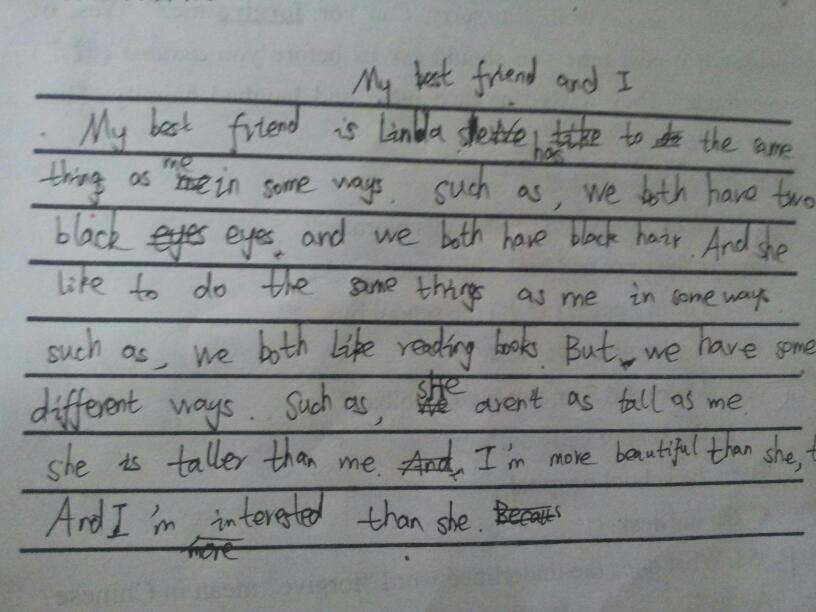 My best friend and I
My best friend is Linda she has to the same
thing as me in some ways. Such as, we both have two
black eyes, and we both have black hair. And she
like to do the same things as me in some ways
such as, we both like reading books. But, we have some
different ways. Such as, she aren't as tall as me.
she is taller than me. I'm more beautiful than she,
And I'm more interested than she.